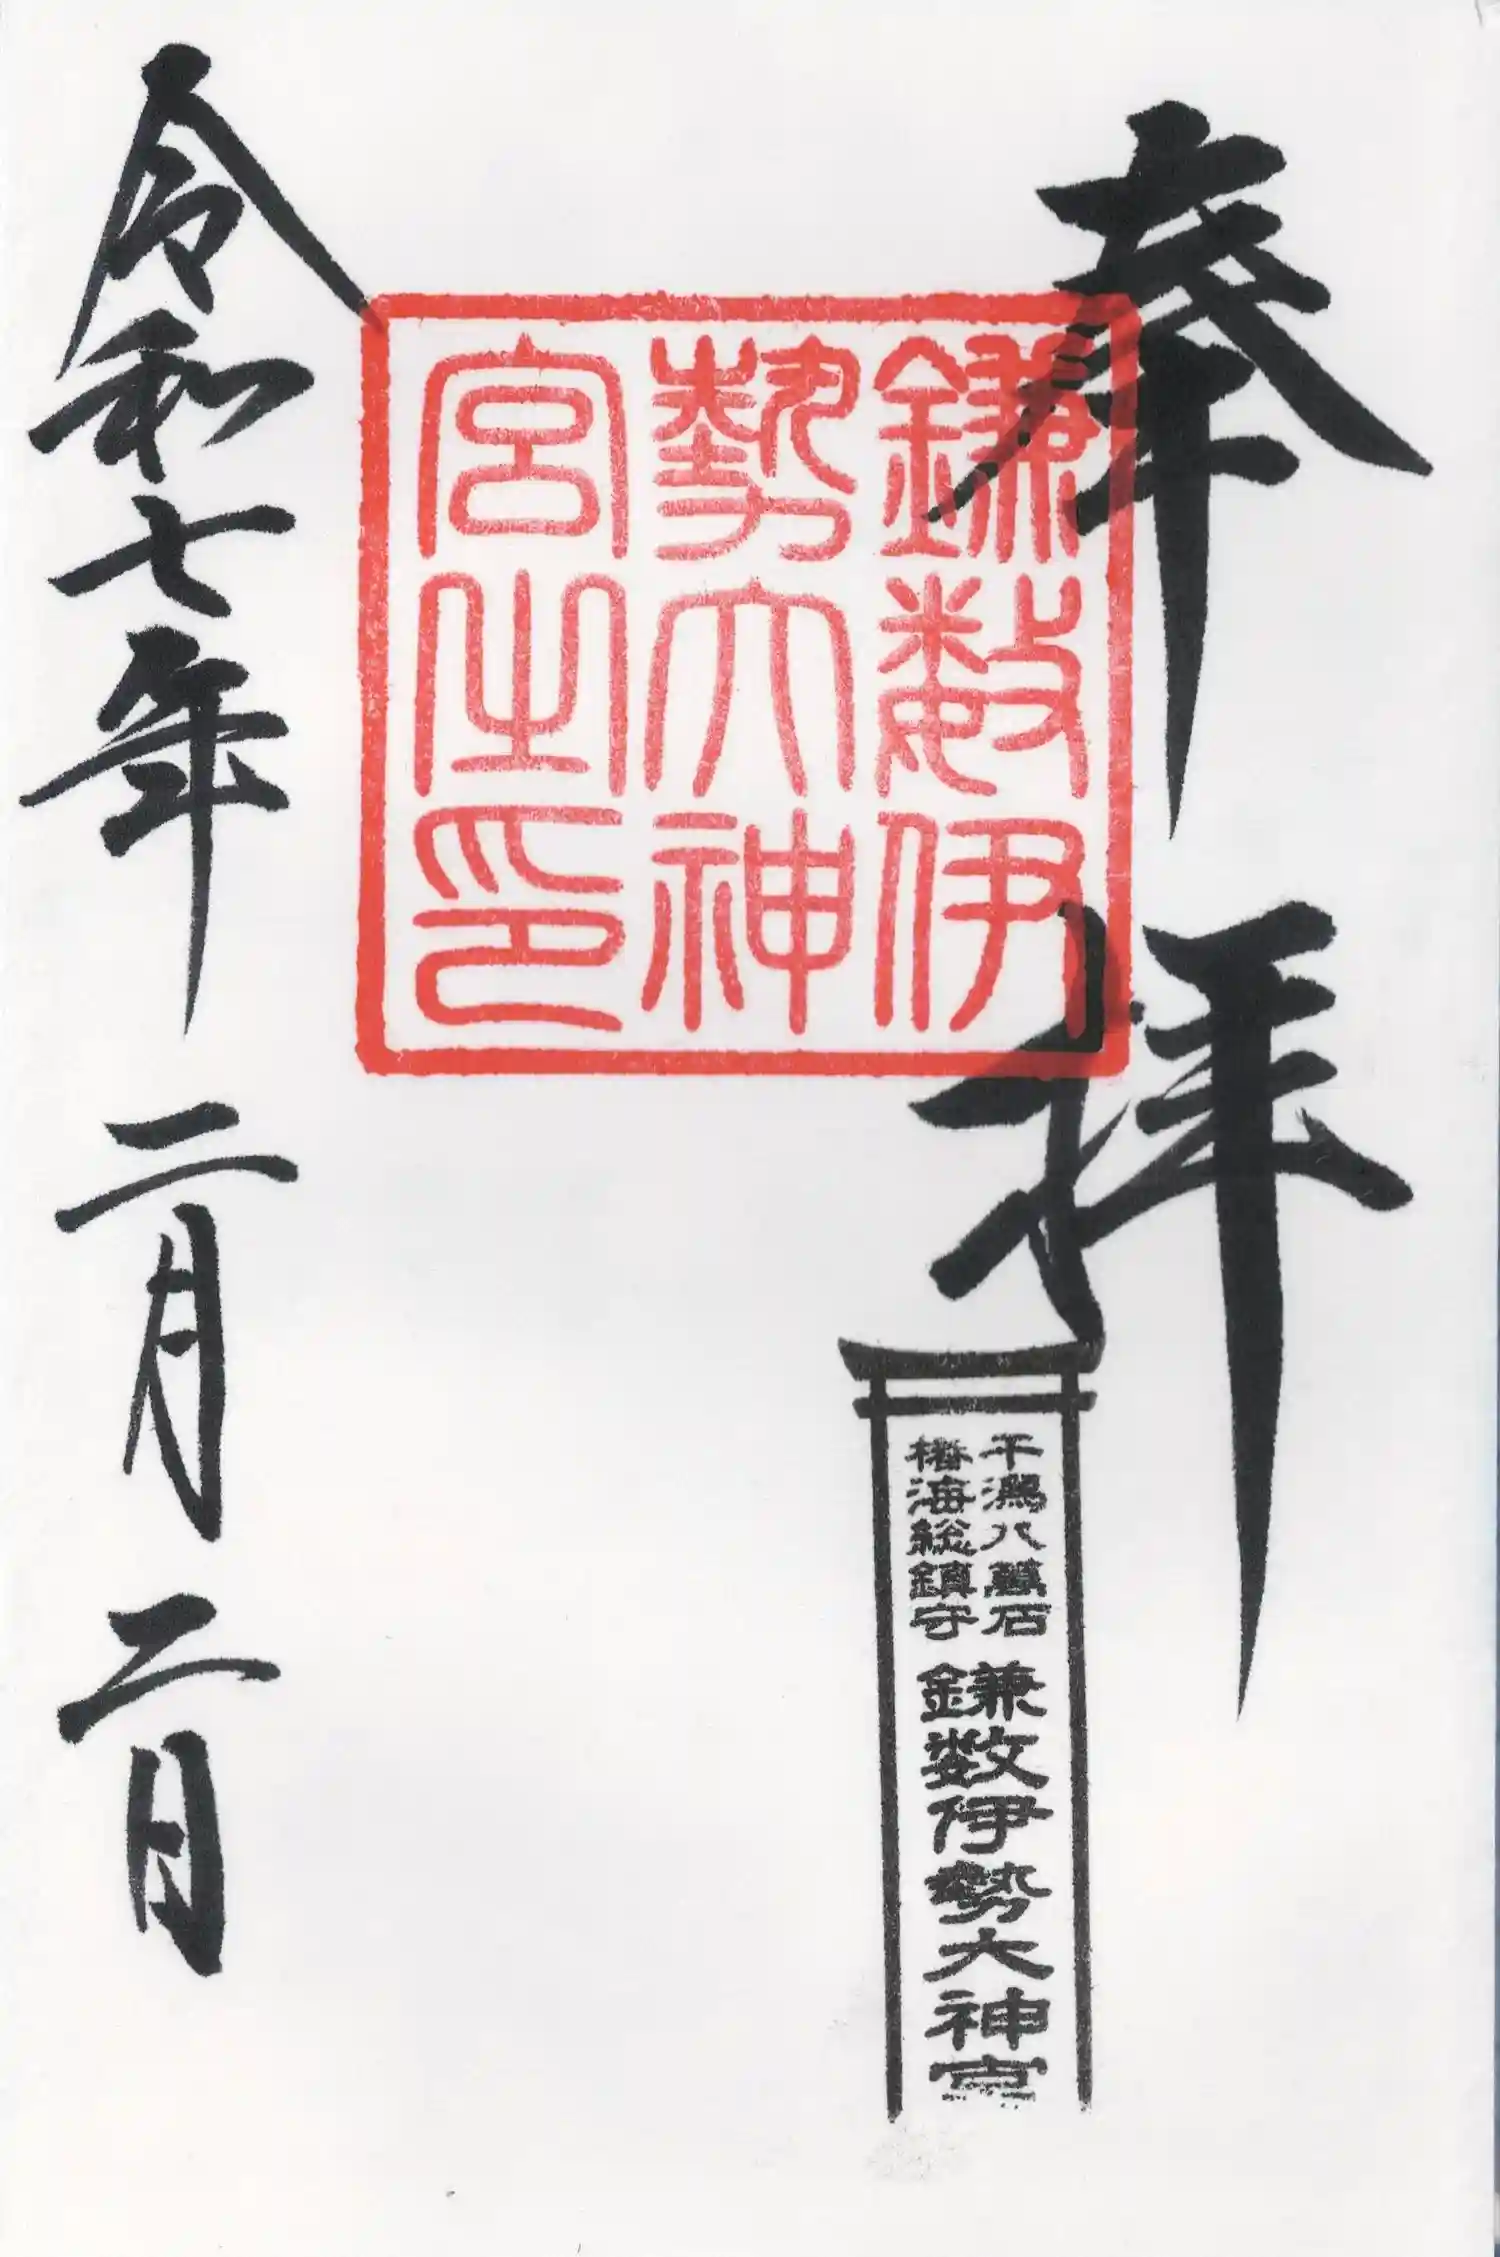 奉拝
干潟八萬石
椿海総鎮守
鎌数伊勢大神宮
鎌数伊
勢大神
宮之印
令和七年 二月 二日